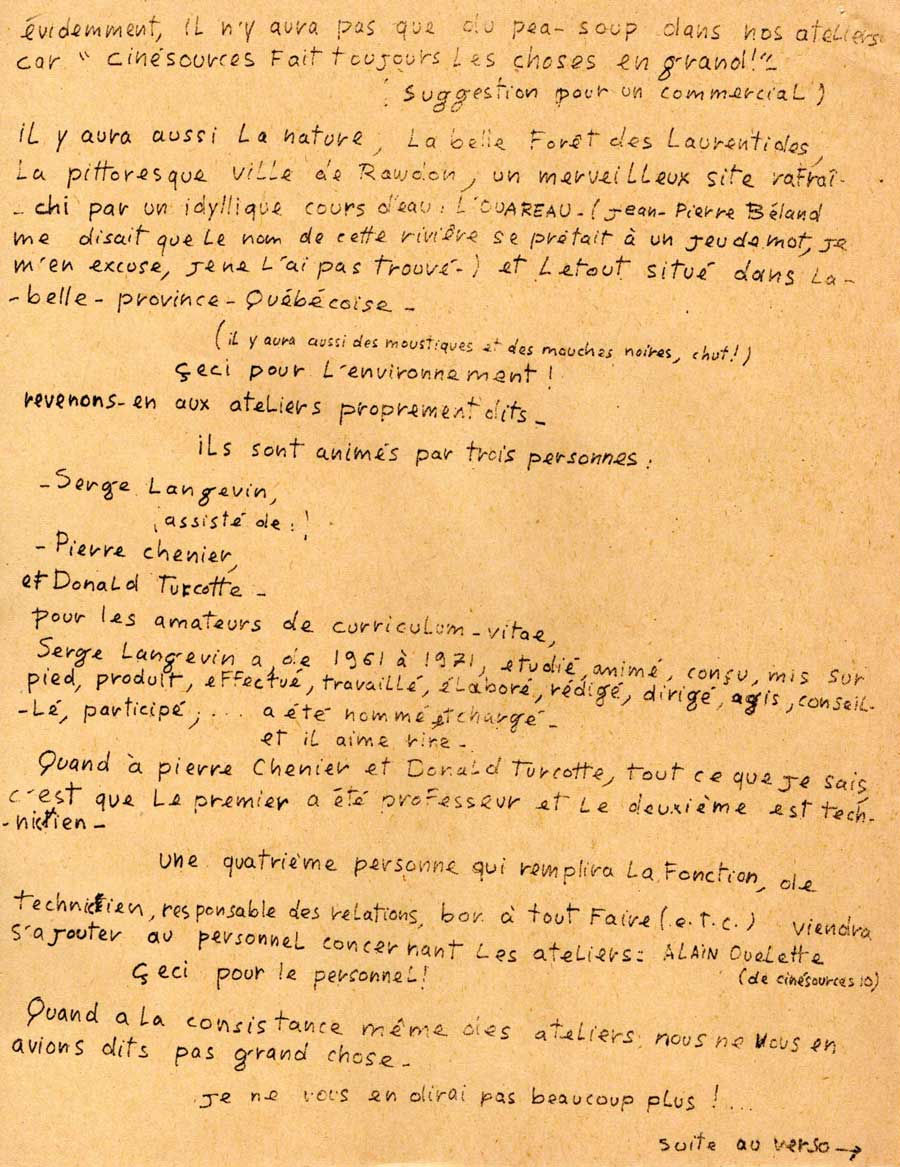 évidemment, il n'y aura pas que du pea-soup dans nos ateliers
car " cinésources Fait toujours Les choses en grand!"-
( suggestion pour un commercial )
il y aura aussi La nature, La belle Forêt des Laurentides,
La pittoresque ville de Rawdon, un merveilleux site rafraî-
- chi par un idyllique cours d'eau : L'OUAREAU - (Jean-Pierre Béland
me disait que Le nom de cette rivière se prêtait à un jeu de mot, je
m'en excuse, je ne L'ai pas trouvé-) et Le tout situé dans La-
-belle-province-Québécoise-
(il y aura aussi des moustiques et des mouches noires, chut!)
Çeci pour L'environnement!
revenons-en aux ateliers proprement dits-
iLs sont animés par trois personnes:
-Serge Langevin,
¡assisté de:!
-Pierre Chenier,
et Donald Turcotte-
pour les amateurs de curriculum-vitae,
Serge Langevin a, de 1961 à 1971, etudié, animé, conçu, mis sur
pied, produit, effectué, travaillé, élaboré, rédigé, dirigé, agis, conseil-
-Lé, participé, ... a été nommé et chargé-
et il aime rire-
Quand à pierre Chenier et Donald Turcotte, tout ce que je sais,
c'est que Le premier a été professeur et Le deuxième est tech-
-nicien-
une quatrième personne qui remplira La Fonction, de
technicien, responsable des relations, bon à tout Faire (.e.t.c.) viendra
s'ajouter au personnel concernant Les ateliers: ALAIN Ouelette
(de cinésources 10)
Çeci pour le personnel!
Quand a La consistance même des ateliers, nous ne vous en
avions dits pas grand chose-
je ne vous en dirai pas beaucoup plus!...
suite au verso→